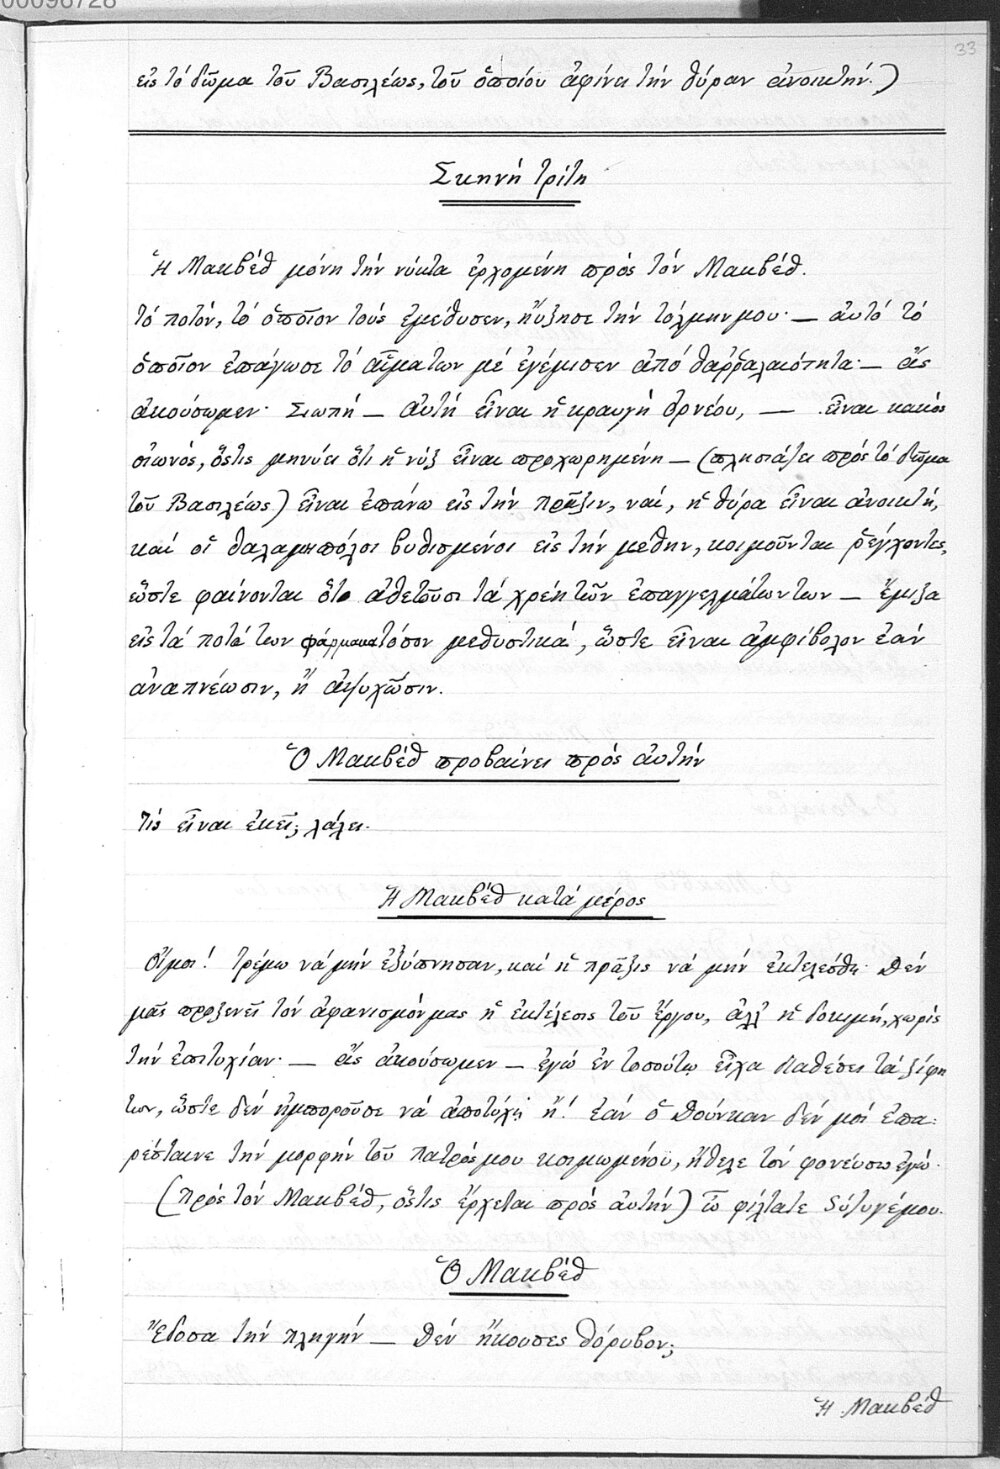 00096728
33
εἰς τὸ δῶμα τοῦ Βασιλέως, τοῦ ὁποίου ἀφίνει τὴν θύραν ἀνοικτήν.)
Σκηνὴ τρίτη
Ἡ Μακβὲθ μόνη τὴν νύκτα ἐρχομένη πρὸς τὸν Μακβέθ.
τὸ ποτόν, τὸ ὁποῖον τοὺς ἐμέθυσεν, ηὔξησε τὴν τόλμην μου· — αὐτὸ τὸ
ὁποῖον ἐπάγωσε τὸ αἷμα των μὲ ἐγέμισεν ἀπὸ θαρραλαιότητα· — ἂς
ἀκούσωμεν· Σιωπή — αὐτὴ εἶναι ἡ κραυγὴ ὀρνέου, — εἶναι κακὸς
οἰωνός, ὅστις μηνύει ὅτι ἡ νὺξ εἶναι προχωρημένη — (πλησιάζει πρὸς τὸ δῶμα
τοῦ Βασιλέως) εἶναι ἐπάνω εἰς τὴν πρᾶξιν, ναί, ἡ θύρα εἶναι ἀνοικτή,
καὶ οἱ θαλαμηπόλοι βυθισμένοι εἰς τὴν μέθην, κοιμοῦνται ῥέγχοντες,
ὥστε φαίνονται ὅτι ἀθετοῦσι τὰ χρέη τῶν ἐπαγγελμάτων των — ἔμιξα
εἰς τὰ ποτά των φάρμακα τόσον μεθυστικά, ὥστε εἶναι ἀμφίβολον ἐὰν
ἀναπνέωσιν, ἢ ἀψυχῶσιν.
Ὁ Μακβὲθ προβαίνει πρὸς αὐτήν
τίς εἶναι ἐκεῖ; λάλει.
Ἡ Μακβὲθ κατὰ μέρος
Οἴμοι! τρέμω νὰ μὴν ἐξύπνησαν, καὶ ἡ πρᾶξις νὰ μὴν ἐκτελέσθη· Δὲν
μᾶς προξενεῖ τὸν ἀφανισμόν μας ἡ ἐκτέλεσις τοῦ ἔργου, ἀλλ' ἡ δοκιμή, χωρὶς
τὴν ἐπιτυχίαν· — ἂς ἀκούσωμεν — ἐγὼ ἐν τοσούτῳ εἶχα διαθέσει τὰ ξίφη
των, ὥστε δὲν ἠμποροῦσε νὰ ἀποτύχῃ ἤ! ἐὰν ὁ Δούνκαν δὲν μοὶ ἐπα-
ρέσταινε τὴν μορφὴν τοῦ πατρός μου κοιμωμένου, ἤθελε τὸν φονεύσω ἐγώ·
(πρὸς τὸν Μακβέθ, ὅστις ἔρχεται πρὸς αὐτήν) ὦ φίλτατε σύζυγέ μου.
Ὁ Μακβέθ
Ἔδοσα τὴν πληγήν — Δὲν ἤκουσες θόρυβον;
Ἡ Μακβέθ